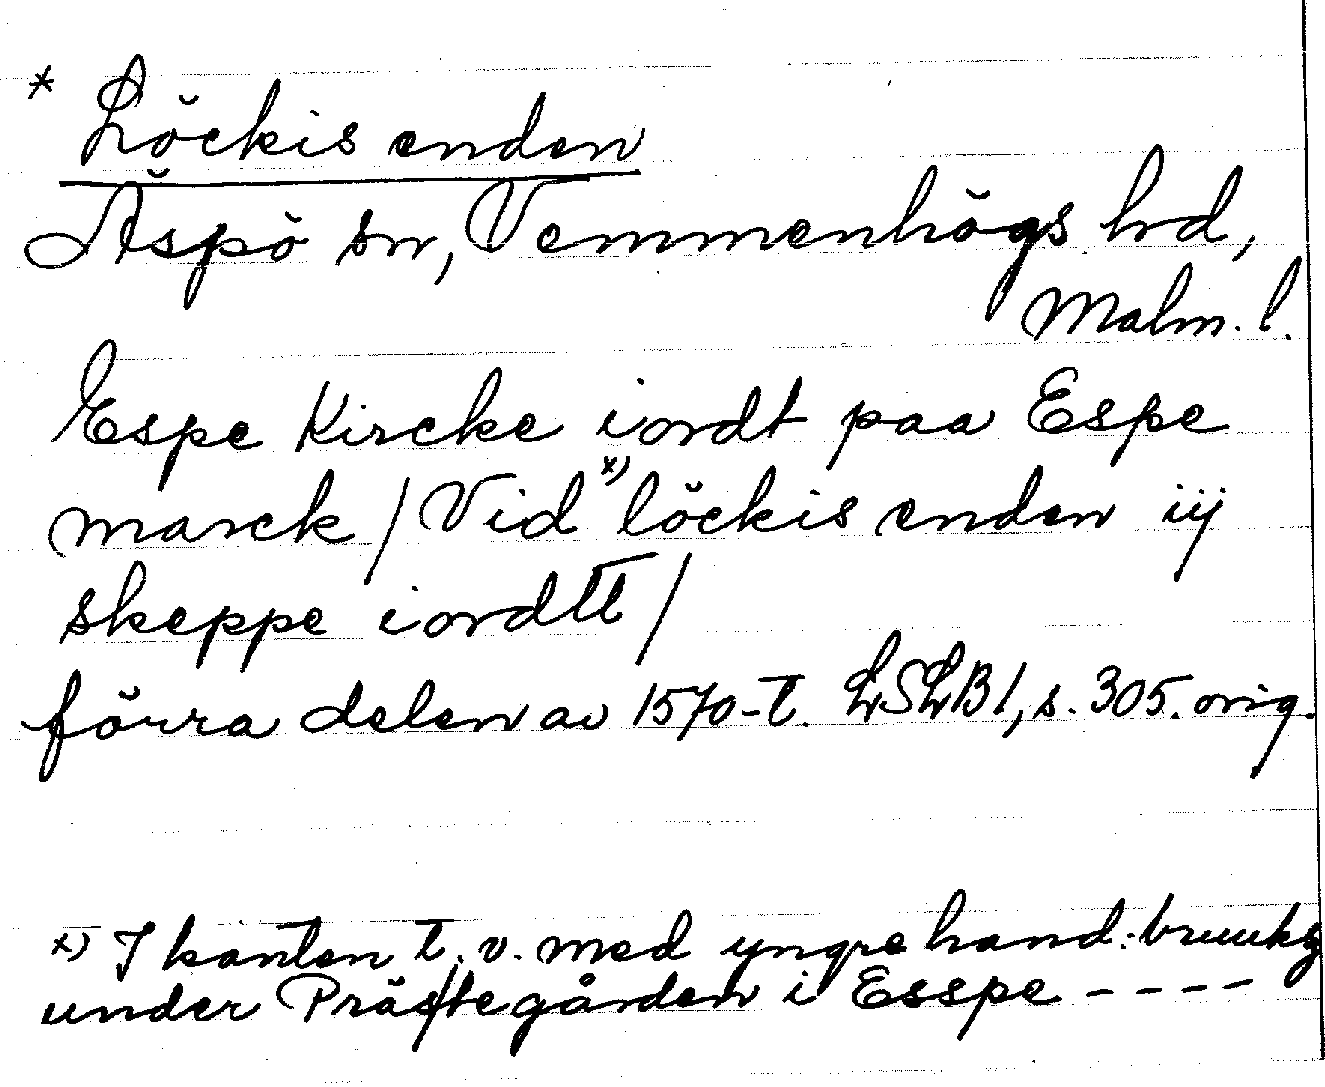 * Löckis enden
Äspö sn, Vemmenhögs hd,
Malm. l.
Espe Kircke iordt paa Espe
marck / Vid x) löckis enden iij
skeppe iordtt /
förra delen av 1570-t. LSLB 1, s. 305. orig.
x) I kanten t. v. med yngre hand: bruuks
under Prästegården i Esspe - - - -